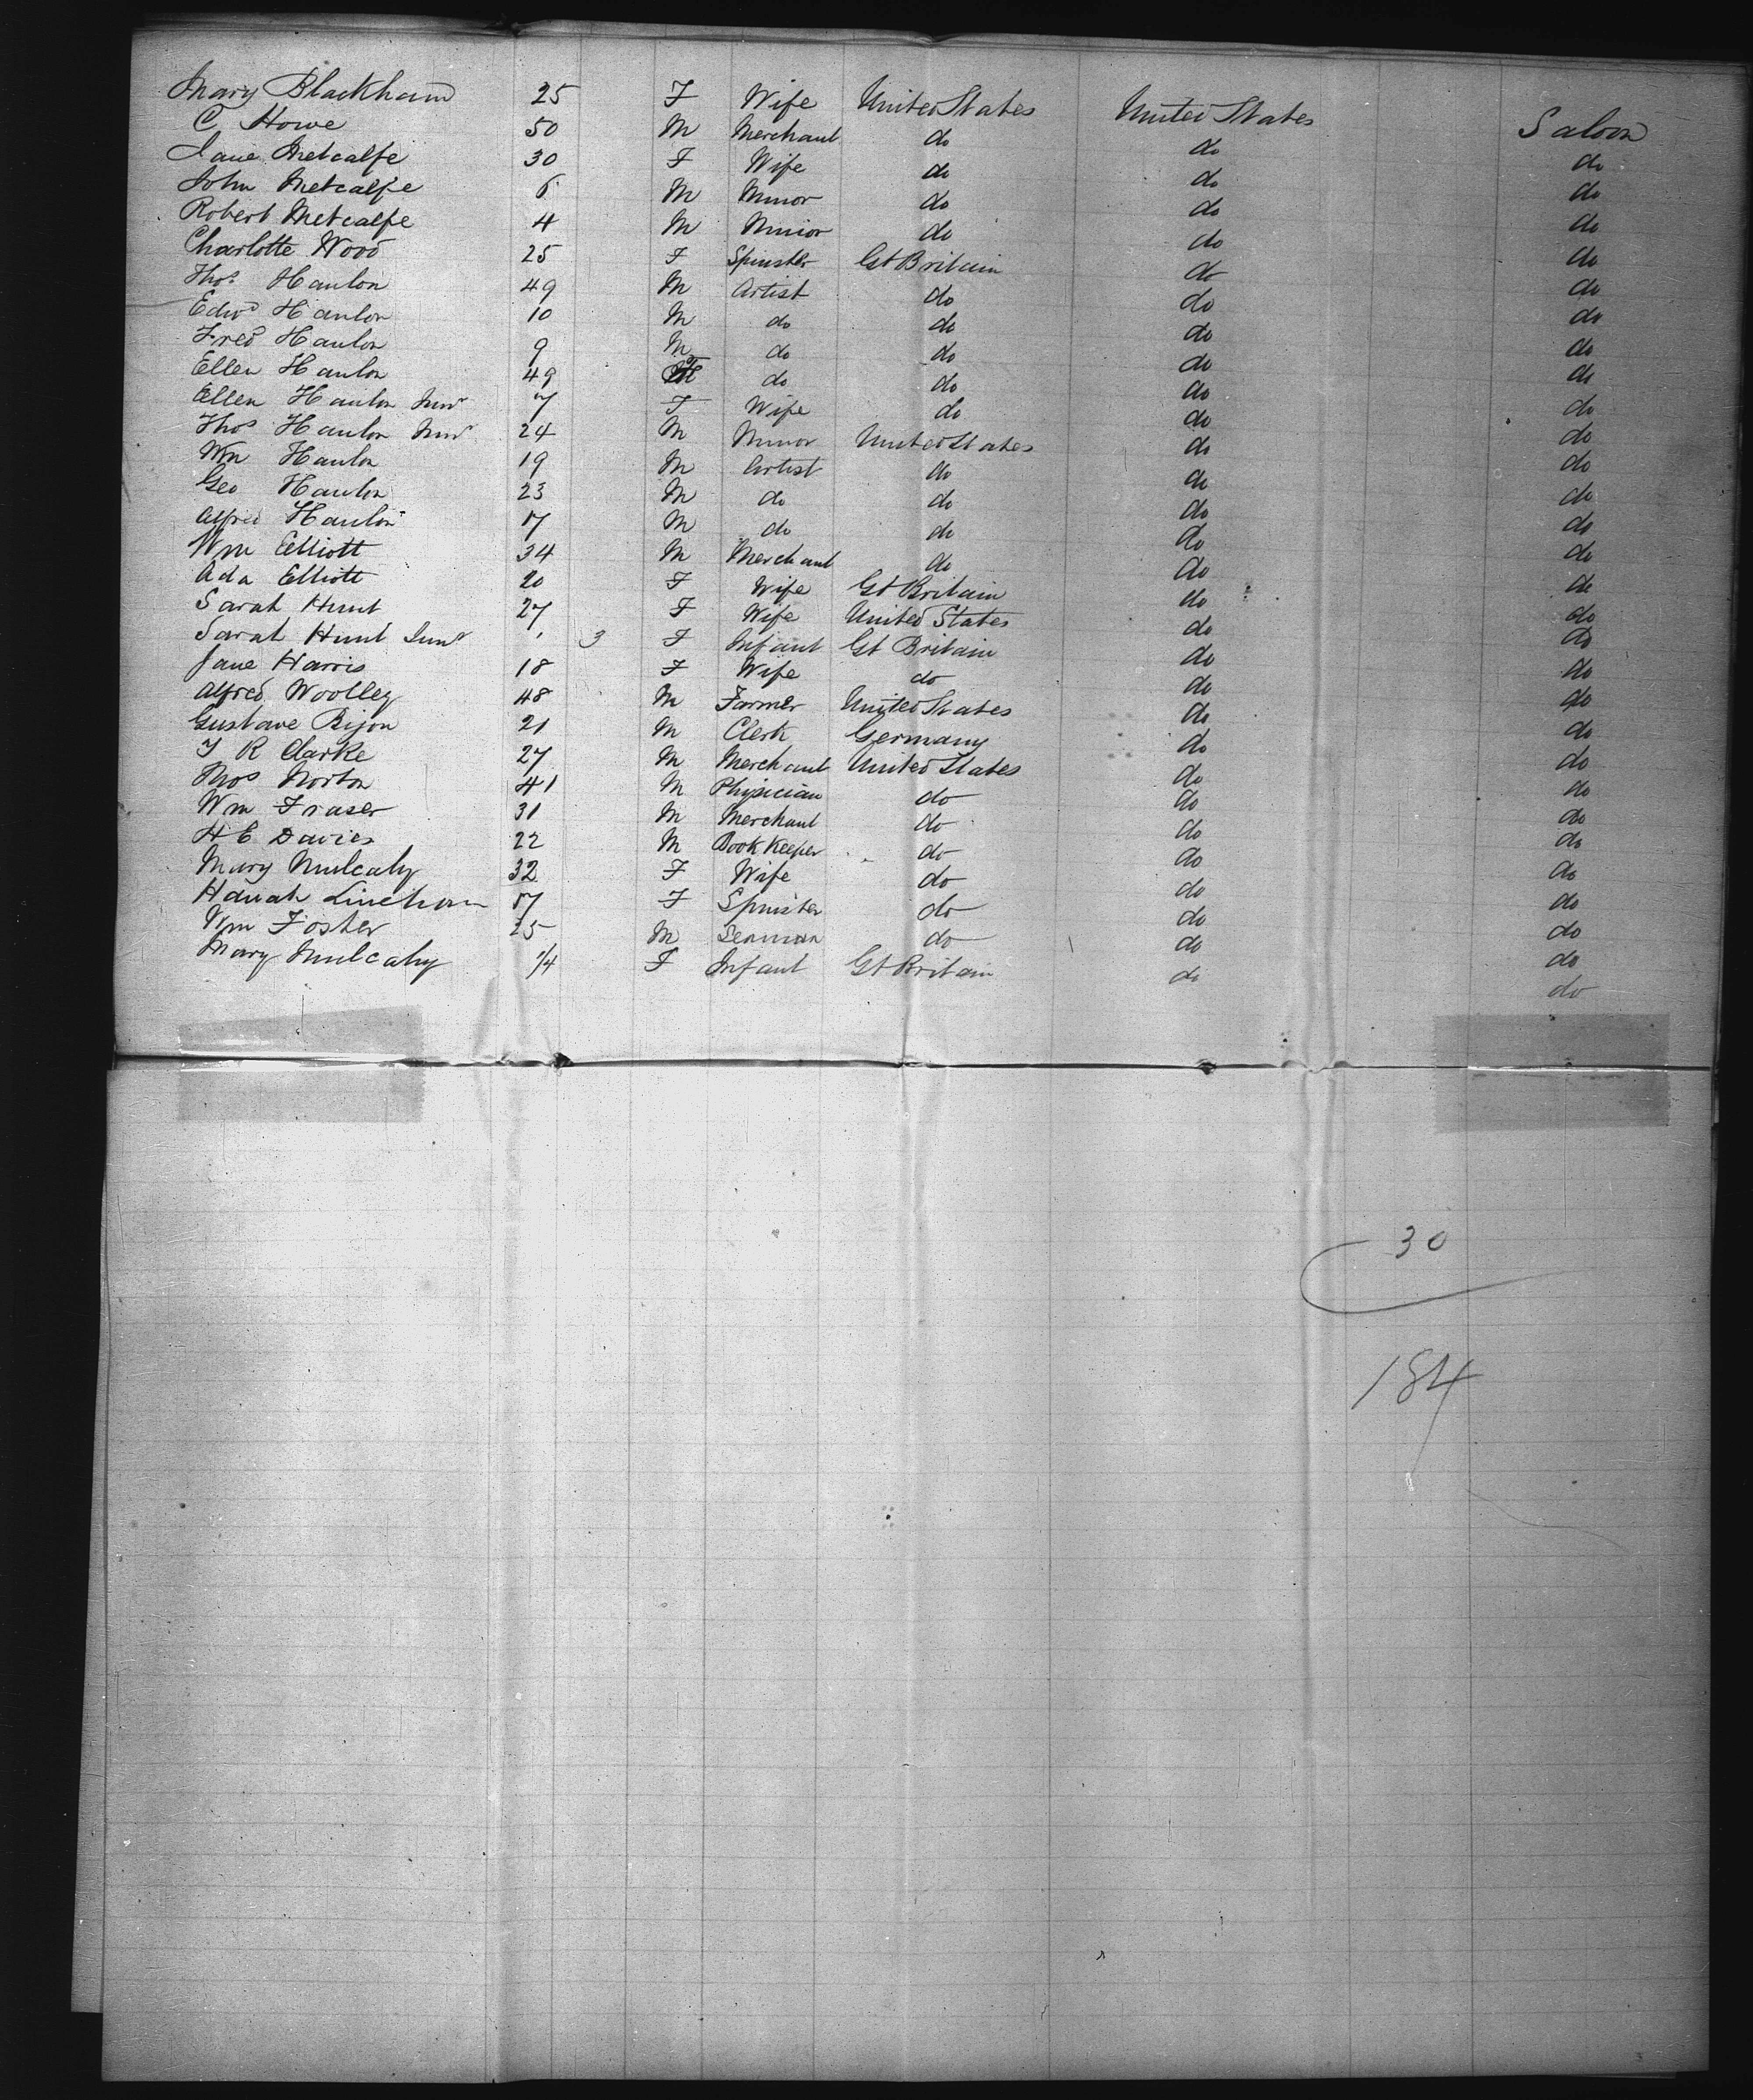 Mary Blackham 25 F Wife United States United States Saloon
C Howe 50 M Merchant do do do
Jane Metcalfe 30 F Wife do do do
John Metcalfe 6 M Minor do do do
Robert Metcalfe 4 M Minor do do do
Charlotte Wood 25 F Spinster Gt Britain do do
Thos Hanlon 49 M Artist do do do
Edwd Hanlon 10 M do do do do
Fred Hanlon 9 M do do do do
Ellen Hanlon 49 F do do do do
Ellen Hanlon Junr 7 F Wife do do do
Thos Hanlon Junr 24 M Minor United States do do
Wm Hanlon 19 M Artist do do do
Geo Hanlon 23 M do do do do
Alfred Hanlon 17 M do do do do
Wm Elliott 34 M Merchant do do do
Ada Elliott 20 F Wife Gt Britain do do
Sarah Hunt 27 F Wife United States do do
Sarah Hunt Junr 3 F Infant Gt Britain do do
Jane Harris 18 F Wife do do do
Alfred Woolley 48 M Farmer United States do do
Gustave Bijon 21 M Clerk Germany do do
R Clarke 27 M Merchant United States do do
Thos Norton 41 M Physician do do do
Wm Fraser 31 M Merchant do do do
H E Davies 22 M Book Keeper do do do
Mary Mulcahy 32 F Wife do do do
Hanah 17 F Spinster do do do
Wm Foster 25 M Seaman do do do
Mary Mulcahy 1/4 F Infant Gt Britain do do
30
184